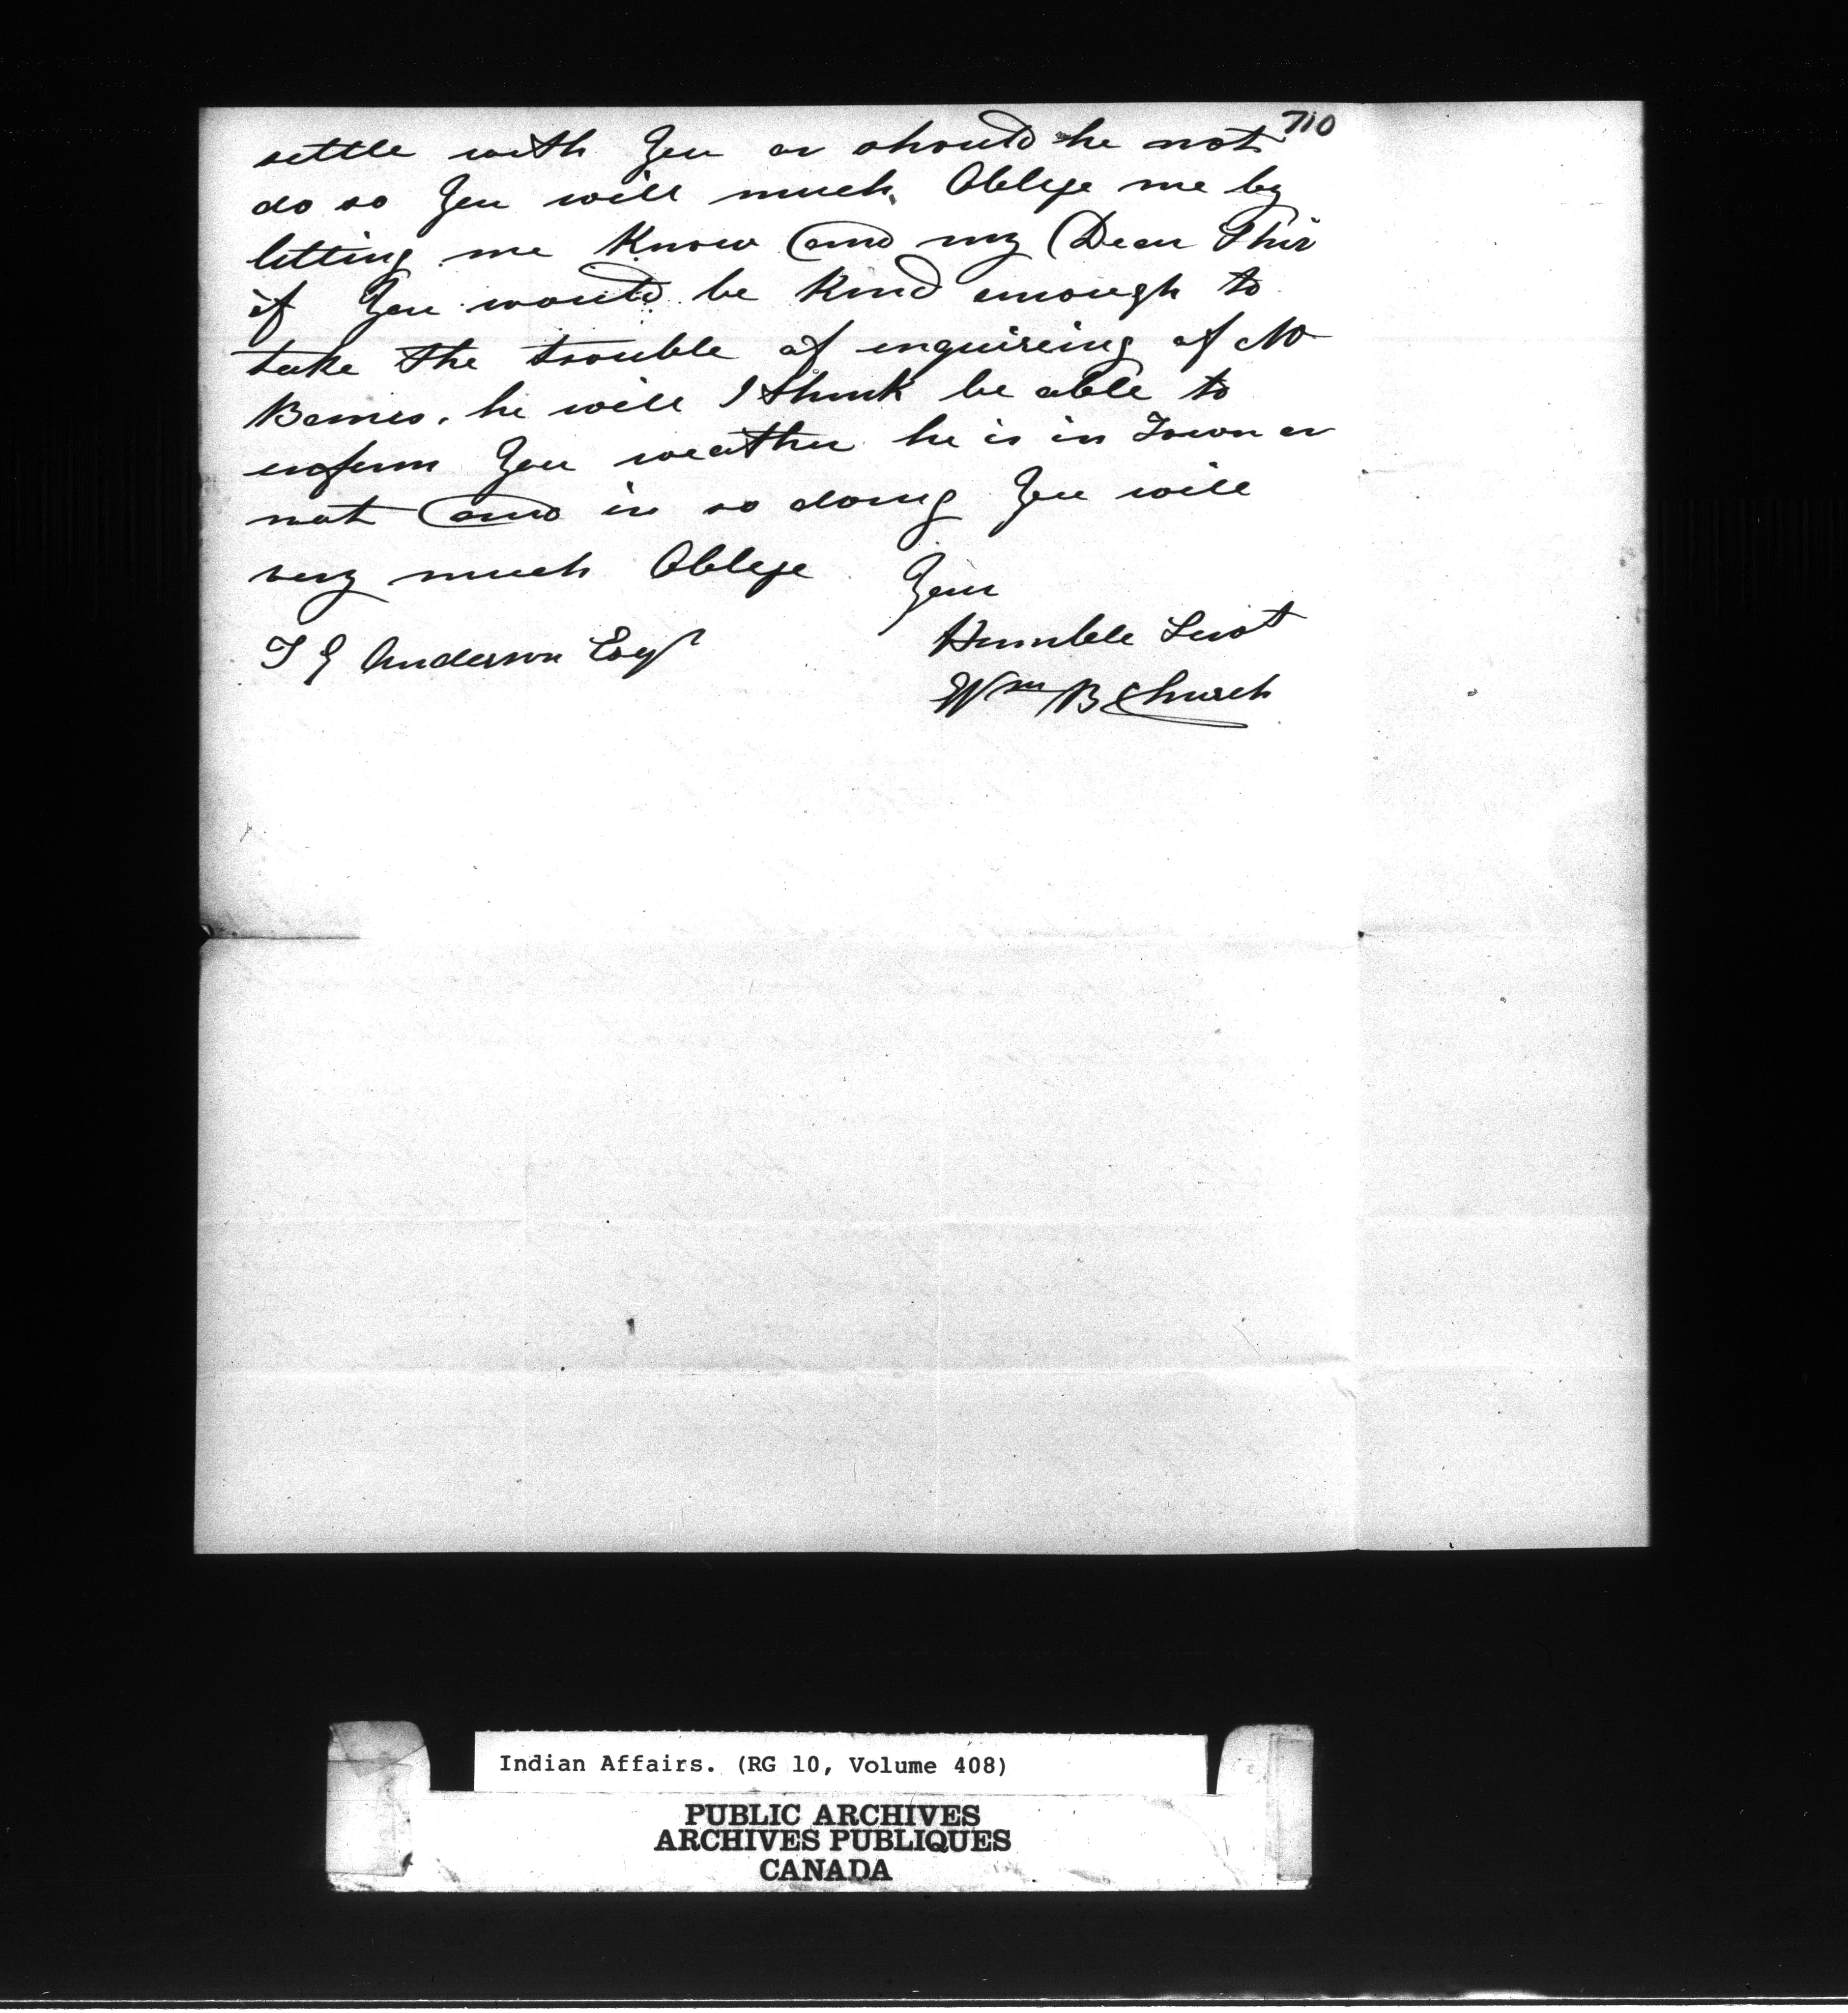 710
settle with You or should he not
do so You will much Oblige me by
letting me Know and my Dear Shir
if You would be Kind enough to
take the trouble of enquireing of Mr
he will I think be able to
inform You weather he is in Town or
not and in so doing You will
very much Oblige Your
Humble Servt
T G Anderson Esqr
Wm B Church
Indian Affairs. (RG 10, Volume 408)
PUBLIC ARCHIVES
ARCHIVES PUBLIQUES
CANADA